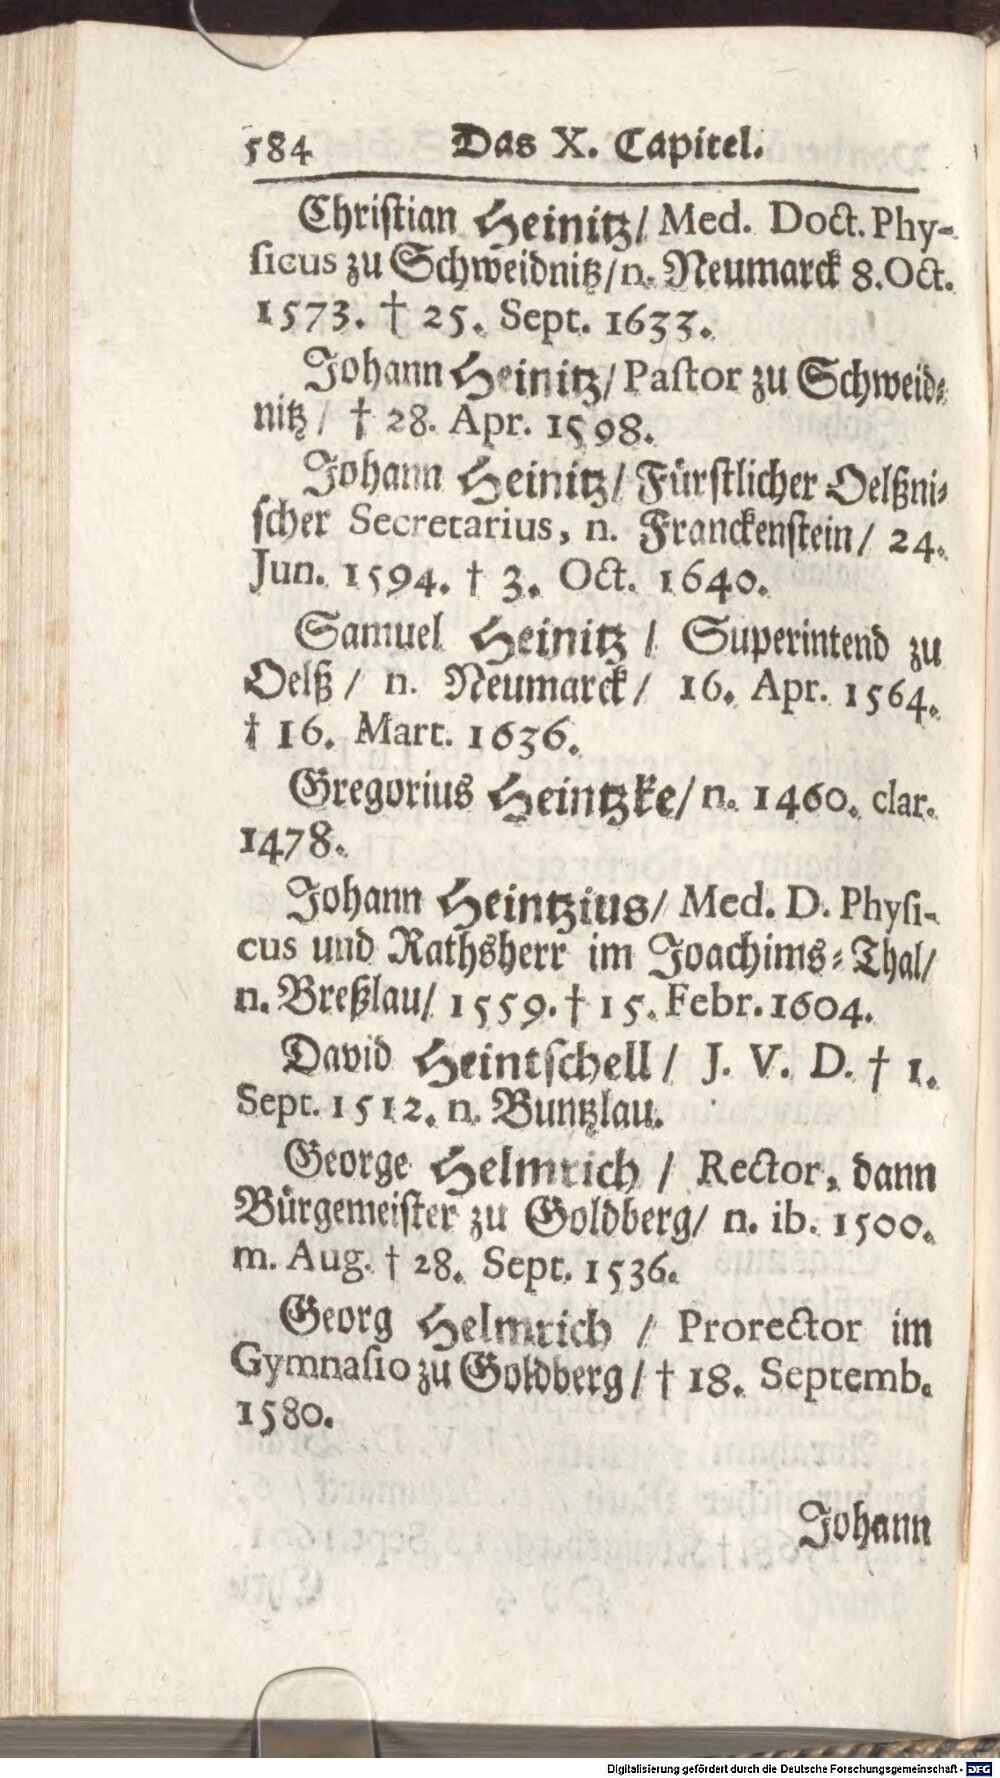 584 Das X. Capitel.
Chriſtian Heinitz/ Med. Doct. Phy-
ſicus zu Schweidnitz/ n. Neumarck 8. Oct.
1573. † 25. Sept. 1633.
Johann Heinitz/ Paſtor zu Schweid⸗
nitz/ † 28. Apr. 1598.
Johann Heinitz/ Fürſtlicher Oelßni⸗
ſcher Secretarius, n. Franckenſtein/ 24.
Jun. 1594. † 3. Oct. 1640.
Samuel Heinitz / Superintend zu
Oelß / n. Neumarck/ 16. Apr. 1564.
† 16. Mart. 1636.
Gregorius Heintzke/ n. 1460. clar.
1478.
Johann Heintzius/ Med. D. Phyſi-
cus und Rathsherr im Joachims⸗Thal/
n. Breßlau/ 1559. † 15. Febr. 1604.
David Heintſchell / J. V. D. † 1.
Sept. 1512. n. Buntzlau.
George Helmrich / Rector, dann
Bürgemeiſter zu Goldberg/ n. ib. 1500.
m. Aug. † 28. Sept. 1536.
Georg Helmrich / Prorector im
Gymnaſio zu Goldberg / † 18. Septemb.
1580.
Johann
Digitalisierung gefördert durch die Deutsche Forschungsgemeinschaft - DFG